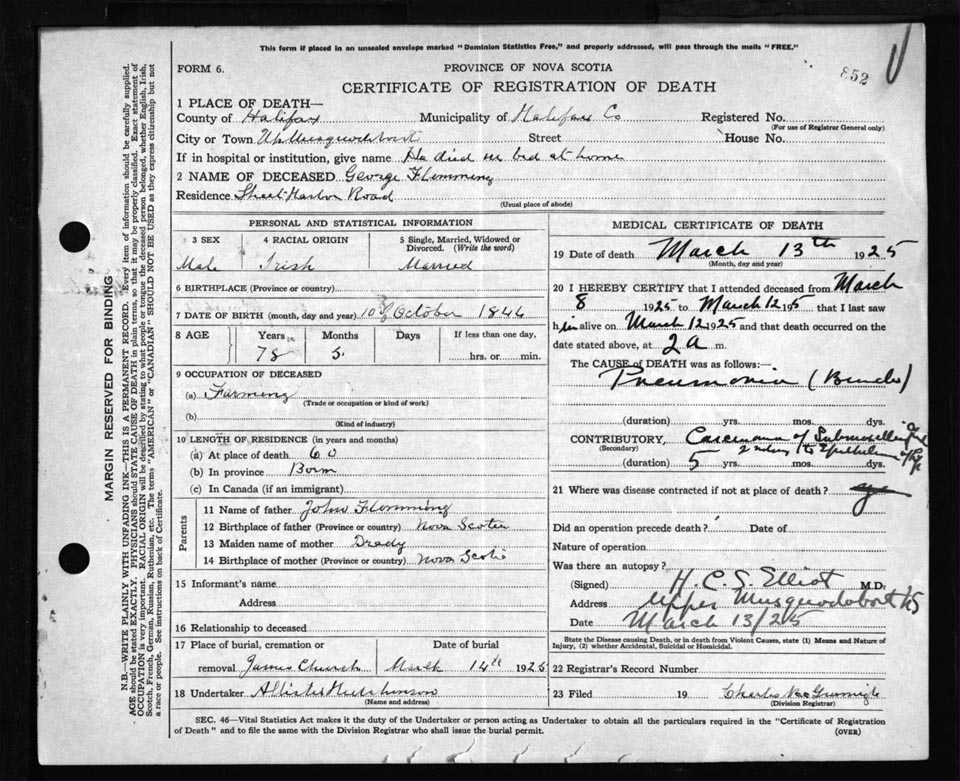 This form if placed in an unsealed envelope marked "Dominion Statistics Free," and properly addressed, will pass through the mails "FREE."
852
FORM 6.
PROVINCE OF NOVA SCOTIA
CERTIFICATE OF REGISTRATION OF DEATH
1 PLACE OF DEATH—
County of Halifax Municipality of Halifax Co Registered No.
(For use of Registrar General only)
City or Town Up Musquodoboit Street House No.
If in hospital or institution, give name He died in bed at home
2 NAME OF DECEASED George Flemming
Residence Sheet Harbor Road
(Usual place of abode)
PERSONAL AND STATISTICAL INFORMATION
3 SEX 4 RACIAL ORIGIN 5 Single, Married, Widowed or Divorced. (Write the word)
Male Irish Married
6 BIRTHPLACE (Province or country)
7 DATE OF BIRTH (month, day and year) 10 of October 1846
8 AGE Years Months Days If less than one day,
78 5 hrs. or min.
9 OCCUPATION OF DECEASED
(a) Farming
(Trade or occupation or kind of work)
(b)
(Kind of industry)
10 LENGTH OF RESIDENCE (in years and months)
(a) At place of death 60
(b) In province Born
(c) In Canada (if an immigrant)
Parents
11 Name of father John Flemming
12 Birthplace of father (Province or country) Nova Scotia
13 Maiden name of mother
14 Birthplace of mother (Province or country) Nova Scotia
15 Informant's name
Address
16 Relationship to deceased
17 Place of burial, cremation or Date of burial
removal James Church March 14th 1925
18 Undertaker Hutchinson
(Name and address)
MEDICAL CERTIFICATE OF DEATH
19 Date of death March 13th 1925
(Month, day and year)
20 I HEREBY CERTIFY that I attended deceased from March
8 1925 to March 12 195 that I last saw
him alive on March 12 1925 and that death occurred on the
date stated above, at 2 a m.
The CAUSE of DEATH was as follows:—
Pneumonia
(duration) yrs. mos. dys.
CONTRIBUTORY, of
(Secondary) to
(duration) 5 yrs. mos. dys.
21 Where was disease contracted if not at place of death?
Did an operation precede death? Date of
Nature of operation
Was there an autopsy?
(Signed) H. C. S. Elliot M.D.
Address Upper Musquodoboit NS
Date March 13/25
State the Disease causing Death, or in death from Violent Causes, state (1) Means and Nature of
Injury, (2) whether Accidental, Suicidal or Homicidal.
22 Registrar's Record Number
23 Filed 19 Charles
(Division Registrar)
SEC. 46—Vital Statistics Act makes it the duty of the Undertaker or person acting as Undertaker to obtain all the particulars required in the "Certificate of Registration
of Death" and to file the same with the Division Registrar who shall issue the burial permit.
(OVER)
MARGIN RESERVED FOR BINDING
N.B.—WRITE PLAINLY WITH UNFADING INK—THIS IS A PERMANENT RECORD. Every item of information should be carefully supplied.
AGE should be stated EXACTLY. PHYSICIANS should STATE CAUSE OF DEATH in plain terms, so that it may be properly classified. Exact statement of
OCCUPATION is very important. RACIAL ORIGIN will be described by stating to what people or tongue the deceased person belonged, whether English, Irish,
Scotch, French, German, Russian, Ruthenian, etc. The terms "AMERICAN" or "CANADIAN" SHOULD NOT BE USED as they express citizenship but not
a race or people. See instructions on back of Certificate.